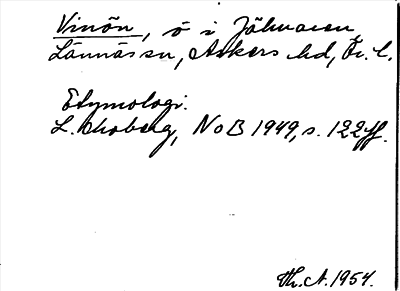 Vinön, ö i Jälmaren
Lännäs sn, Askers hd, Ör. l.
Etymologi:
L. Moberg, NoB 1949, s. 122 ff.
Th. A. 1954.